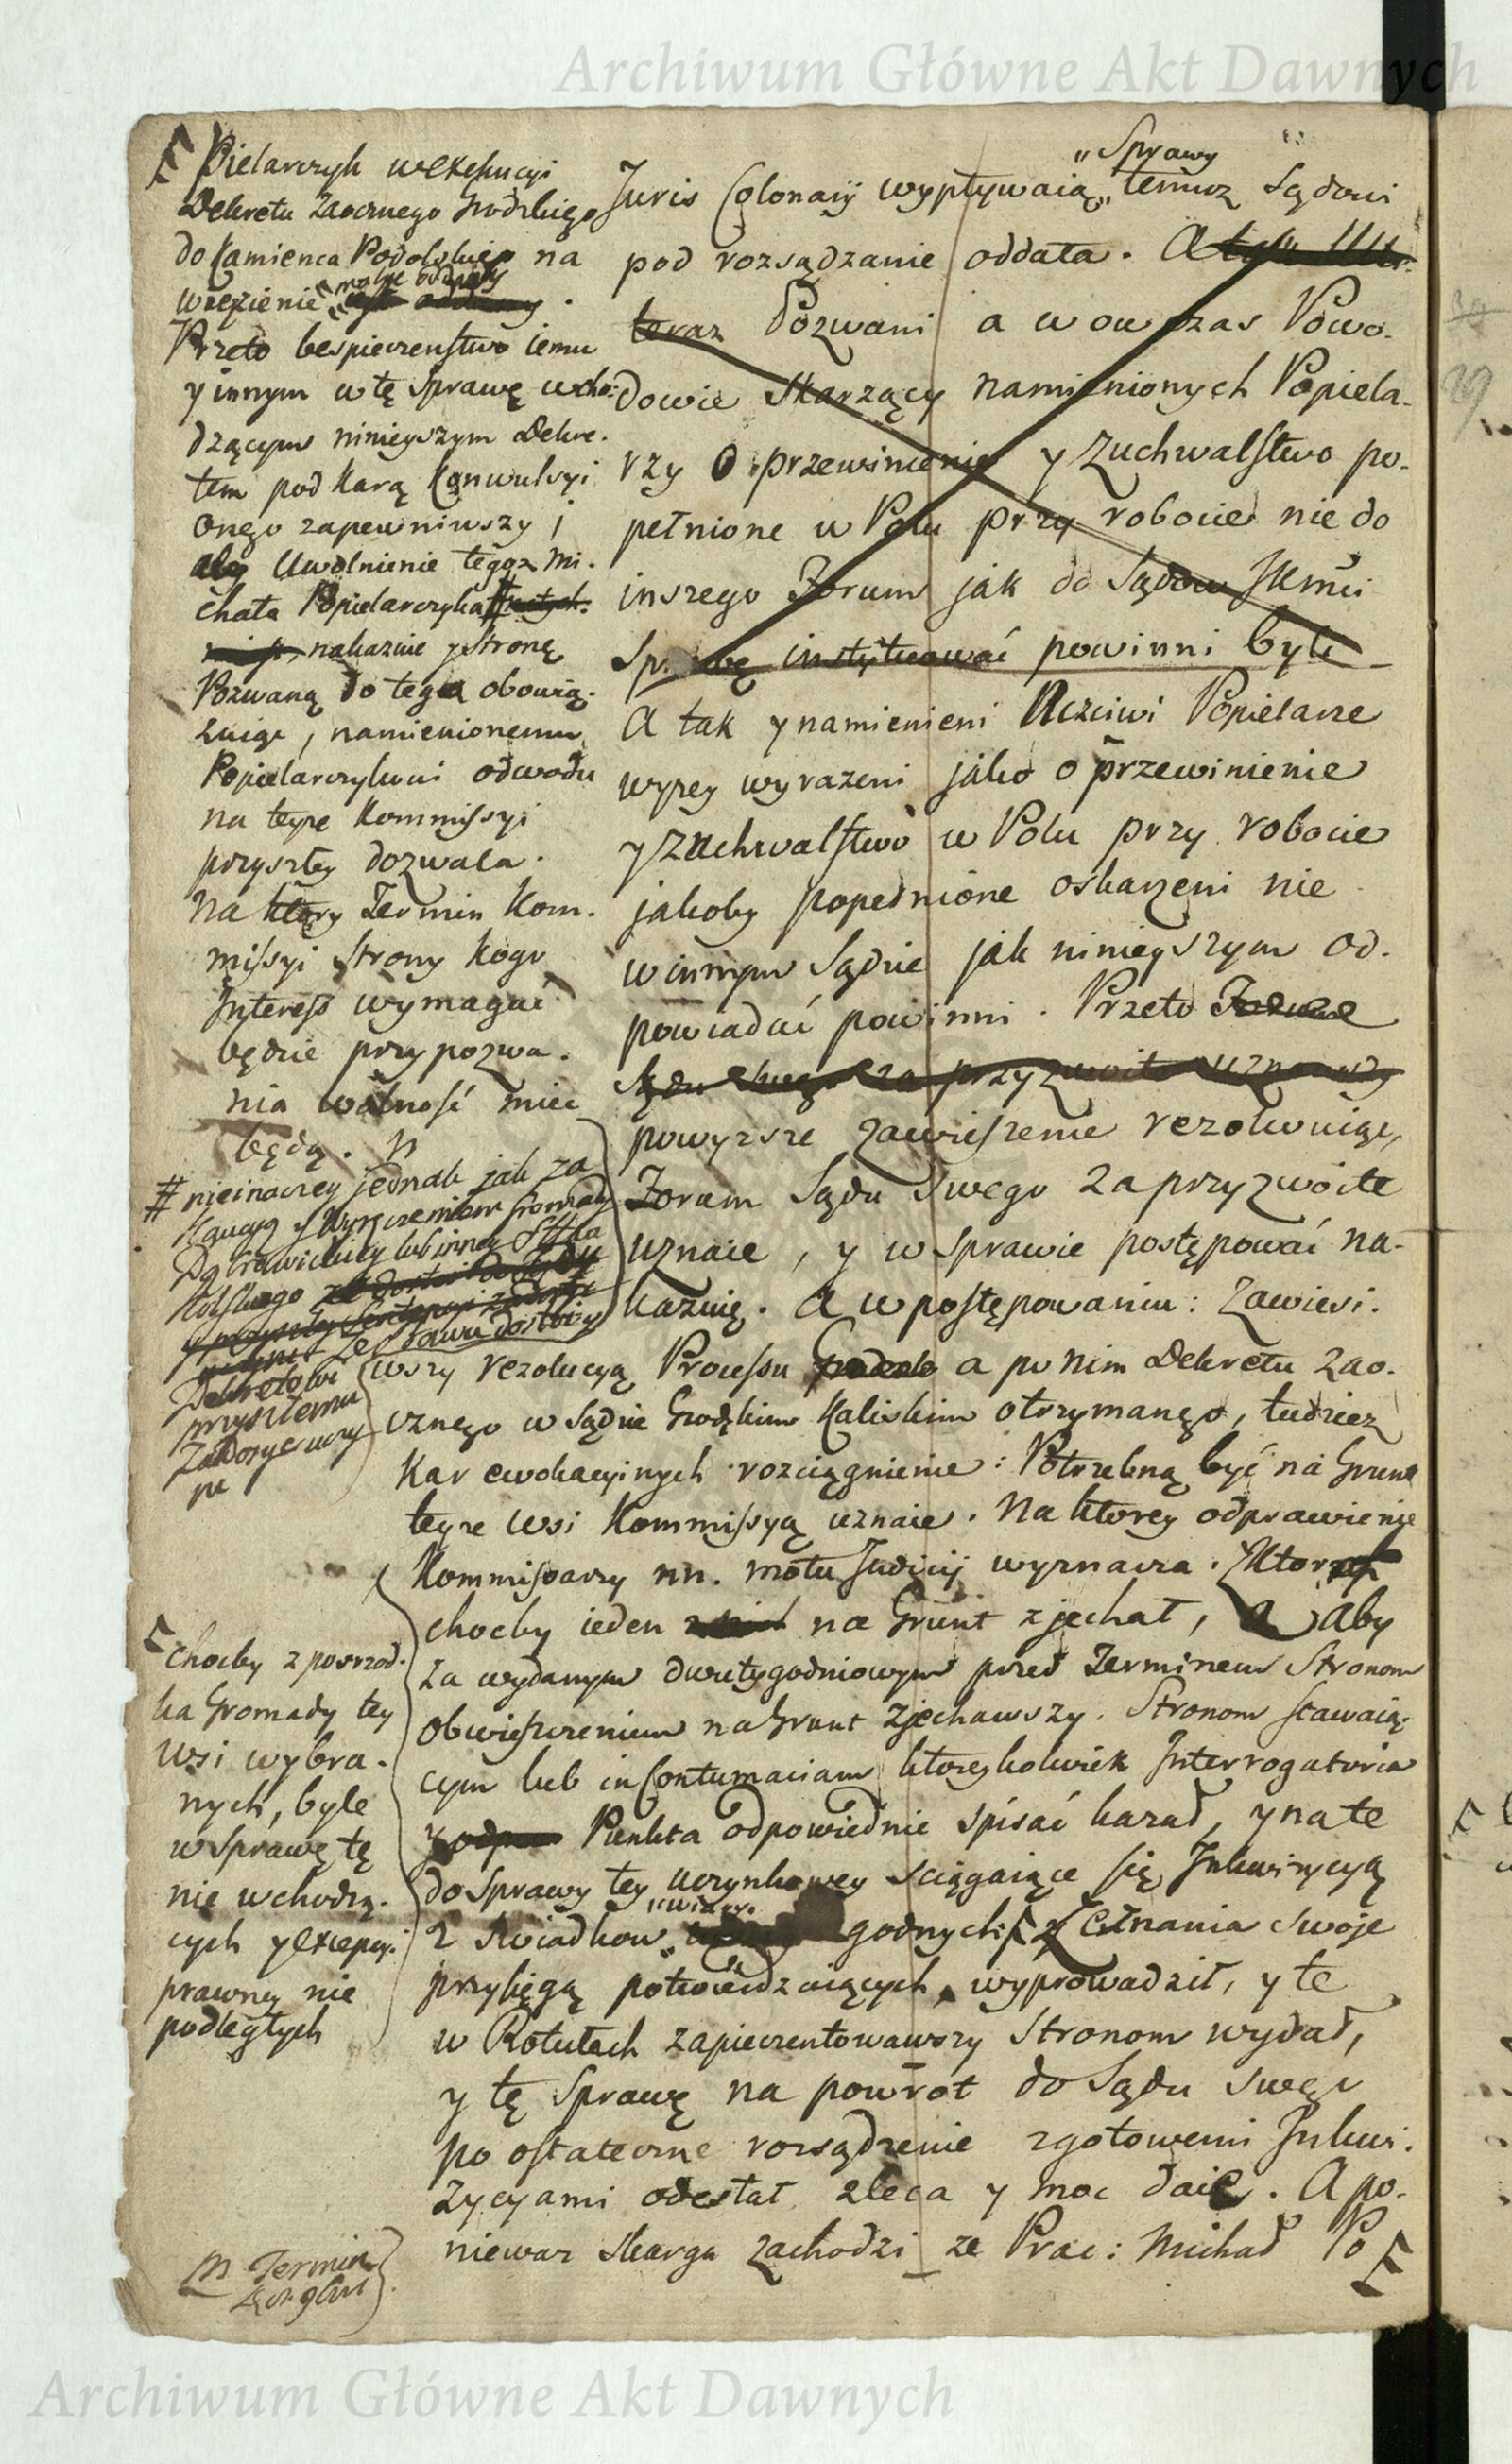 Archiwum Główne Akt Dawnych
Pielarczyk w exekucyi
Dekretu zaocznego Grodzkiego
do Kamienca Podolskiego na
więzienie „może oddany
Przeto bespieczenstwo iemu
y innym w tę sprawę wcho-
dzącym ninieyszym Dekre-
tem pod karą konwulsyi
onego zapewniwszy i
uwolnienie tegoz Mi-
chała Popielarczyka #
nakazuie y stronę
Pozwaną do tego obowią-
zuige, namienionemu
Popielarczykowi odwodu
na teyze Kommissyi
przyszłey dozwala.
Na ktory Termin Kom-
missyi strony kogo
Interess wymagać
będzie przypozwa-
nia wolność mieć
będą.
# nieinaczey jednak jak za
Kaucyą y wyręczeniem Gromady
lub inney
Dekretowi
przyszłemu
Zadosyc uczy
ni
chocby z posrzod-
ka Gromady tey
wsi wybra-
nych, byle
w sprawę tę
nie wchodzą-
cych y excepcyi
prawney nie
podległych
Termin
Juris Colonarÿ wypływaią „Sprawy„ temuz Sądowi
pod rozsądzanie oddała. A
teraz Pozwani a w ow czas Powo-
dowie Skarzący namienionych Popiela-
rzy o przewinienie y zuchwalstwo po-
pełnione w Polu przy robocie nie do
inszego Forum jak do Sądow
Sprawę instytuować powinni byli
A tak y namienieni Uczciwi Popielarze
wyzey wyrazeni jako o przewinienie
y zuchwalstwo w Polu przy robocie
jakoby popełnione oskarzeni nie
w innym Sądzie jak ninieyszym od-
powiadać powinni. Przeto
Sądu swego za przyzwoite uznawszy
powyzsze zawieszenie rezolwuiąc,
Forum Sądu swego za przyzwoite
uznaie, y w sprawie postępować na-
kazuię. A w postępowaniu: zawiesi-
wszy rezolucyą Processu a po nim Dekretu zao-
cznego w Sądzie Grodzkim Kaliskim otrzymanego, tudziez
Kar ewokacyinych rozciągnienie: Potrzebną być na Grunt
teyze wsi Kommissyą uznaie. Na ktorey odprawienie
Kommissarzy nn. motu Judicij wyznacza.
chocby ieden na Grunt zjechał, aby
za wydanym dwutygodniowym przed Terminem Stronom
obwieszczeniem na Grunt zjechawszy. Stronom stawaią-
cym lub in Contumaciam ktoreykolwiek Interrogatoria
Punkta odpowiednie spisać kazał, y na te
do sprawy tey uczynkowey sciągaiące się Inkwizycyą
z Swiadkow „wiary„ godnych zeznania swoje
przysięgą potwierdzaiących, wyprowadził, y te
w Rotułach zapieczentowawszy Stronom wydał,
y tę sprawę na powrót do Sądu swego
po ostateczne rozsądzenie z gotowemi Inkwi-
zycyami odesłał zleca y moc daie. A po-
niewaz skarga zachodzi ze Prac: Michał Po
Archiwum Główne Akt Dawnych